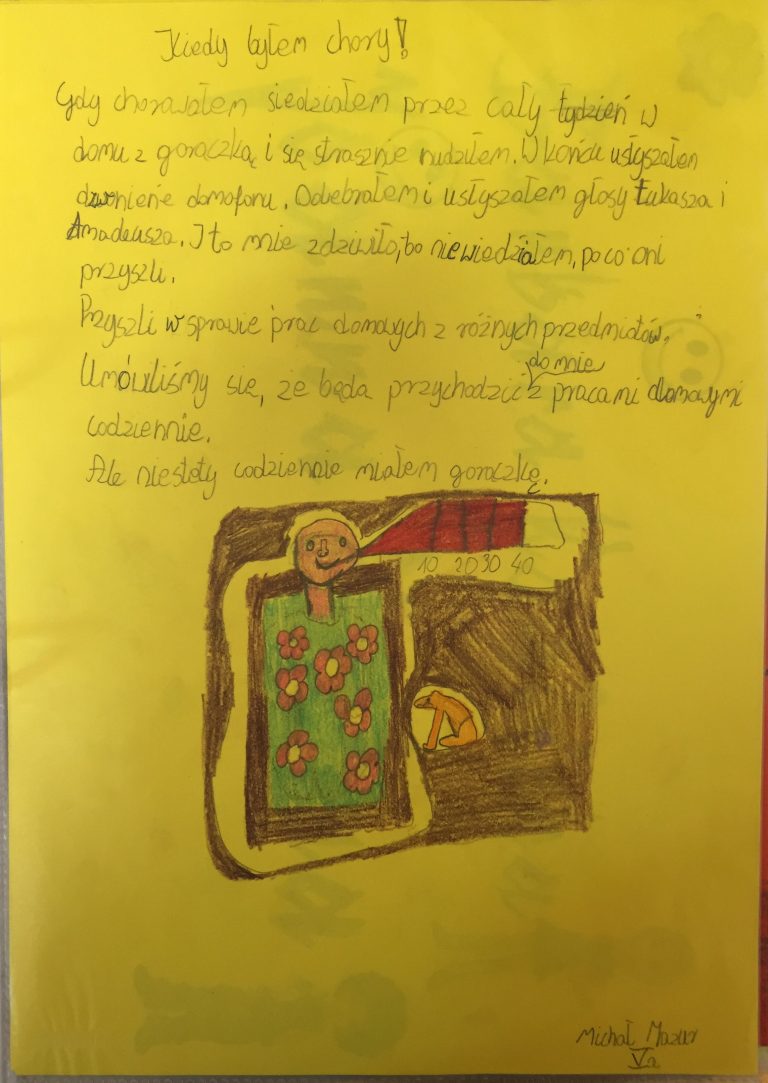 Kiedy byłem chory!
Gdy chorowałem siedziałem przez cały tydzień w
domu z gorączką i się strasznie nudziłem. W końcu usłyszałem
dzwonienie domofonu. Odebrałem i usłyszałem głosy Łukasza i
Amadeusza. I to mnie zdziwiło, bo nie wiedziałem, po co oni
przyszli.
Przyszli w sprawie prac domowych z różnych przedmiotów.
Umówiliśmy się, że będą przychodzić do mnie z pracami domowymi
codziennie.
Ale niestety codziennie miałem gorączkę.
10 20 30 40
Michał Mazur
Va